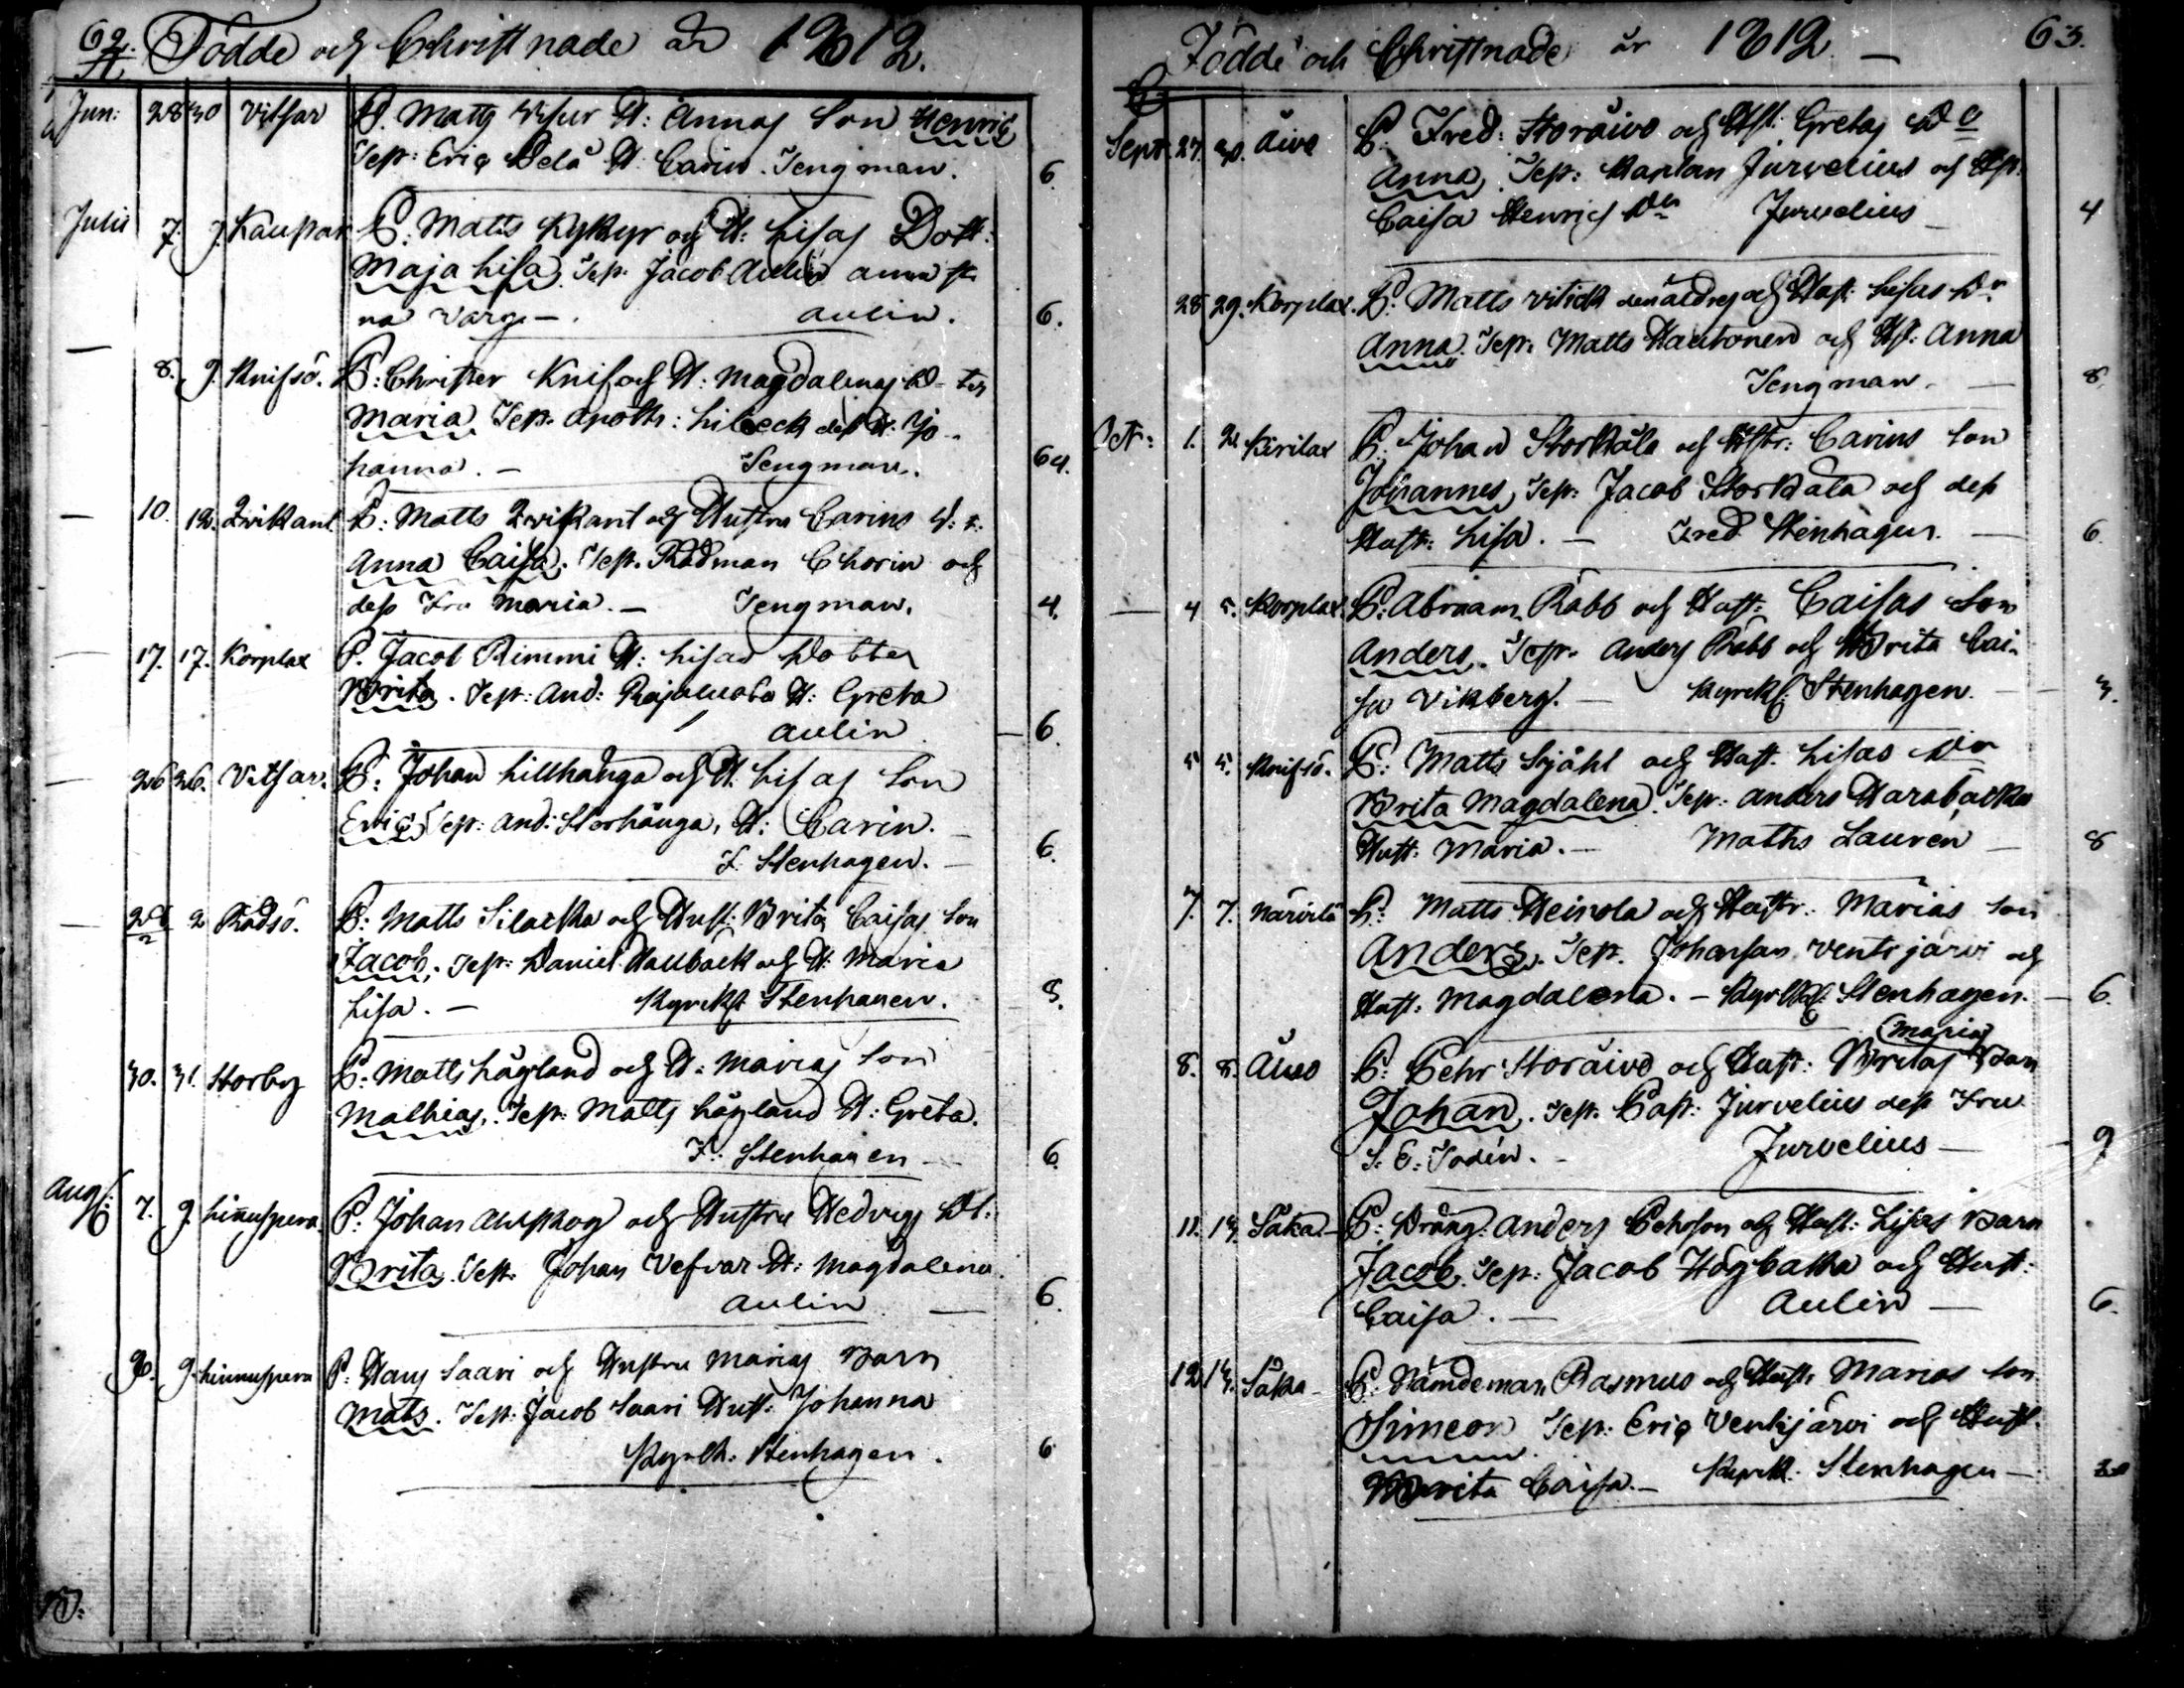 62. Födde och Christnade år 1812.
Jun: 28 30 Vitsar B. Matts Visur H: Annas Son Henric
Tesp: Eric Belä H: Carin. Tengman. 6
Julii 7. 9. Kaustar B. Matts Kykyr och H: Lisas Dott:
Maja Lisa. Tesp. Jacob Aulin Anna St
na Varg. Aulin. 6.
8. 9. Knifsö. B: Christer Knif och H: Magdalenas D-ter
Maria Tesp. Apoth: Libeck dess H. Jo-
hanna. Tengman.
10. 12. Zvikant B: Matts Zvikant och Hustru Carins
Anna Caisa. Tesp. Rådman Chorin och
dess Fru Maria. Tengman. 4.
17. 17. Korplax B. Jacob Rimmi H: Lisas Dotter
Brita. Tesp: And: H: Greta
Aulin 6.
26 26. Vitsar. B. Johan Lillhänga och H. Lisas Son
Eric Tesp: And: Storhänga, H: Carin.
F. Stenhagen. 6.
2 Rådsö. B: Matts Silacka och Hust: Brita Caisas Son
Jacob. Tesp: Daniel Haubäck och H: Maria
Lisa. Kyrkh Stenhagen. 8.
30. 31. Storby B: Matts Högland och H: Marias Son
Mathias. Tesp: Matts Högland H: Greta.
F: Stenhagen 6.
Aug: 7. 9. Linnuspera B: Johan Ahlskog och Hustru Hedvigs Dt:
Brita. Tesp: Johan Vefvar H: Magdalena.
Aulin 6.
9. Linnuspera B: Hans Saari och Hustru Marias Barn
Mats. Tesp: Jacob Saari Hust: Johanna
Kyrkh. Stenhagen. 6
Födde och Christnade år 1812. 63.
Sept. 27. 30. Äivo B. Fred: Storäivo och Hst: Gretas Dr
Anna. Tesp: Kaplan Jurvelius och Hst.
Caisa Henrics Dtr Jurvelius 4
28 29. Korplax. B. Matts Vitick den äldres och Hust: Lisas Dr
Anna. Tesp. Matts Hautonen och Hst: Anna
Tengman. 8
Oct: 1. 2. Kirilax B: Johan Storkåla och Hstr: Carins Son
Johannes, Tesp: Jacob Storkåla och dess
Hust: Lisa. Fred Stenhagen. 6.
4 5. Korplax B: Abraam Rabb och Hust: Caisas Son
Anders. Tesp. Anders Rabb och Brita Cai-
sa Vikberg. Kyrkh Stenhagen. 3.
5 5. Knifsö. B: Matts Sjöhl och Hust. Lisas Dtr
Brita Magdalena. Tesp: Anders Harabacka
Hust: Maria. Maths Lauren 8
7. 7. Närvilä B: Matts Heinola och Hustr: Marias Son
Anders. Tesp. Johansan Ventjärvi och
Hust. Magdalena. Kyrkh: Stenhagen. 6.
Maria
8. 8. Äivo B: Pehr Storäivo och Hust: Britas Barn
Johan. Tesp. Cap: Jurvelius dess Fru
S: E: Jodin. Jurvelius 9
11. 13. Såka B: Dräng: Anders Pehrson och Hust: Lisas Barn
Jacob. Tesp: Jacob Högbacka och Hust:
Caisa. Aulin 6.
12 13. Såka B: Nämdeman Rasmus och Hust: Marias Son
Simeon Tesp: Eric Ventjärvi och Hust
Brita Caisa. Kyrkh. Stenhagen